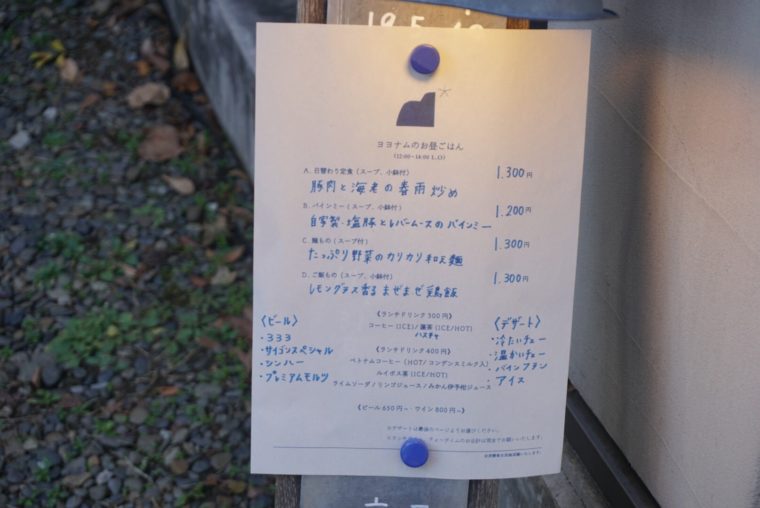 ヨヨナムのお昼ごはん
(12:00~14:00 L.O)
A. 日替わり定食 (スープ、小鉢付)
豚肉と海老の春雨炒め 1,300円
B. バインミー (スープ、小鉢付)
自家製・塩豚とレバームースのバインミー 1,200円
C. 麺もの (スープ付)
たっぷり野菜のカリカリ和え麺 1,300円
D. ご飯もの (スープ、小鉢付)
レモングラス香るまぜまぜ鶏飯 1,300円
〈ビール〉
・333
・サイゴンスペシャル
・シンハー
・プレミアムモルツ
《ランチドリンク 300円》
コーヒー (ICE) / 蓮茶 (ICE/HOT)
ハスチャ
《ランチドリンク 400円》
ベトナムコーヒー (HOT/コンデンスミルク入)
ルイボス茶 (ICE/HOT)
ライムソーダ / リンゴジュース / みかん伊予柑ジュース
《ビール 650円~ ワイン 800円~》
〈デザート〉
・冷たいチェー
・温かいチェー
・バインフラン
・アイス